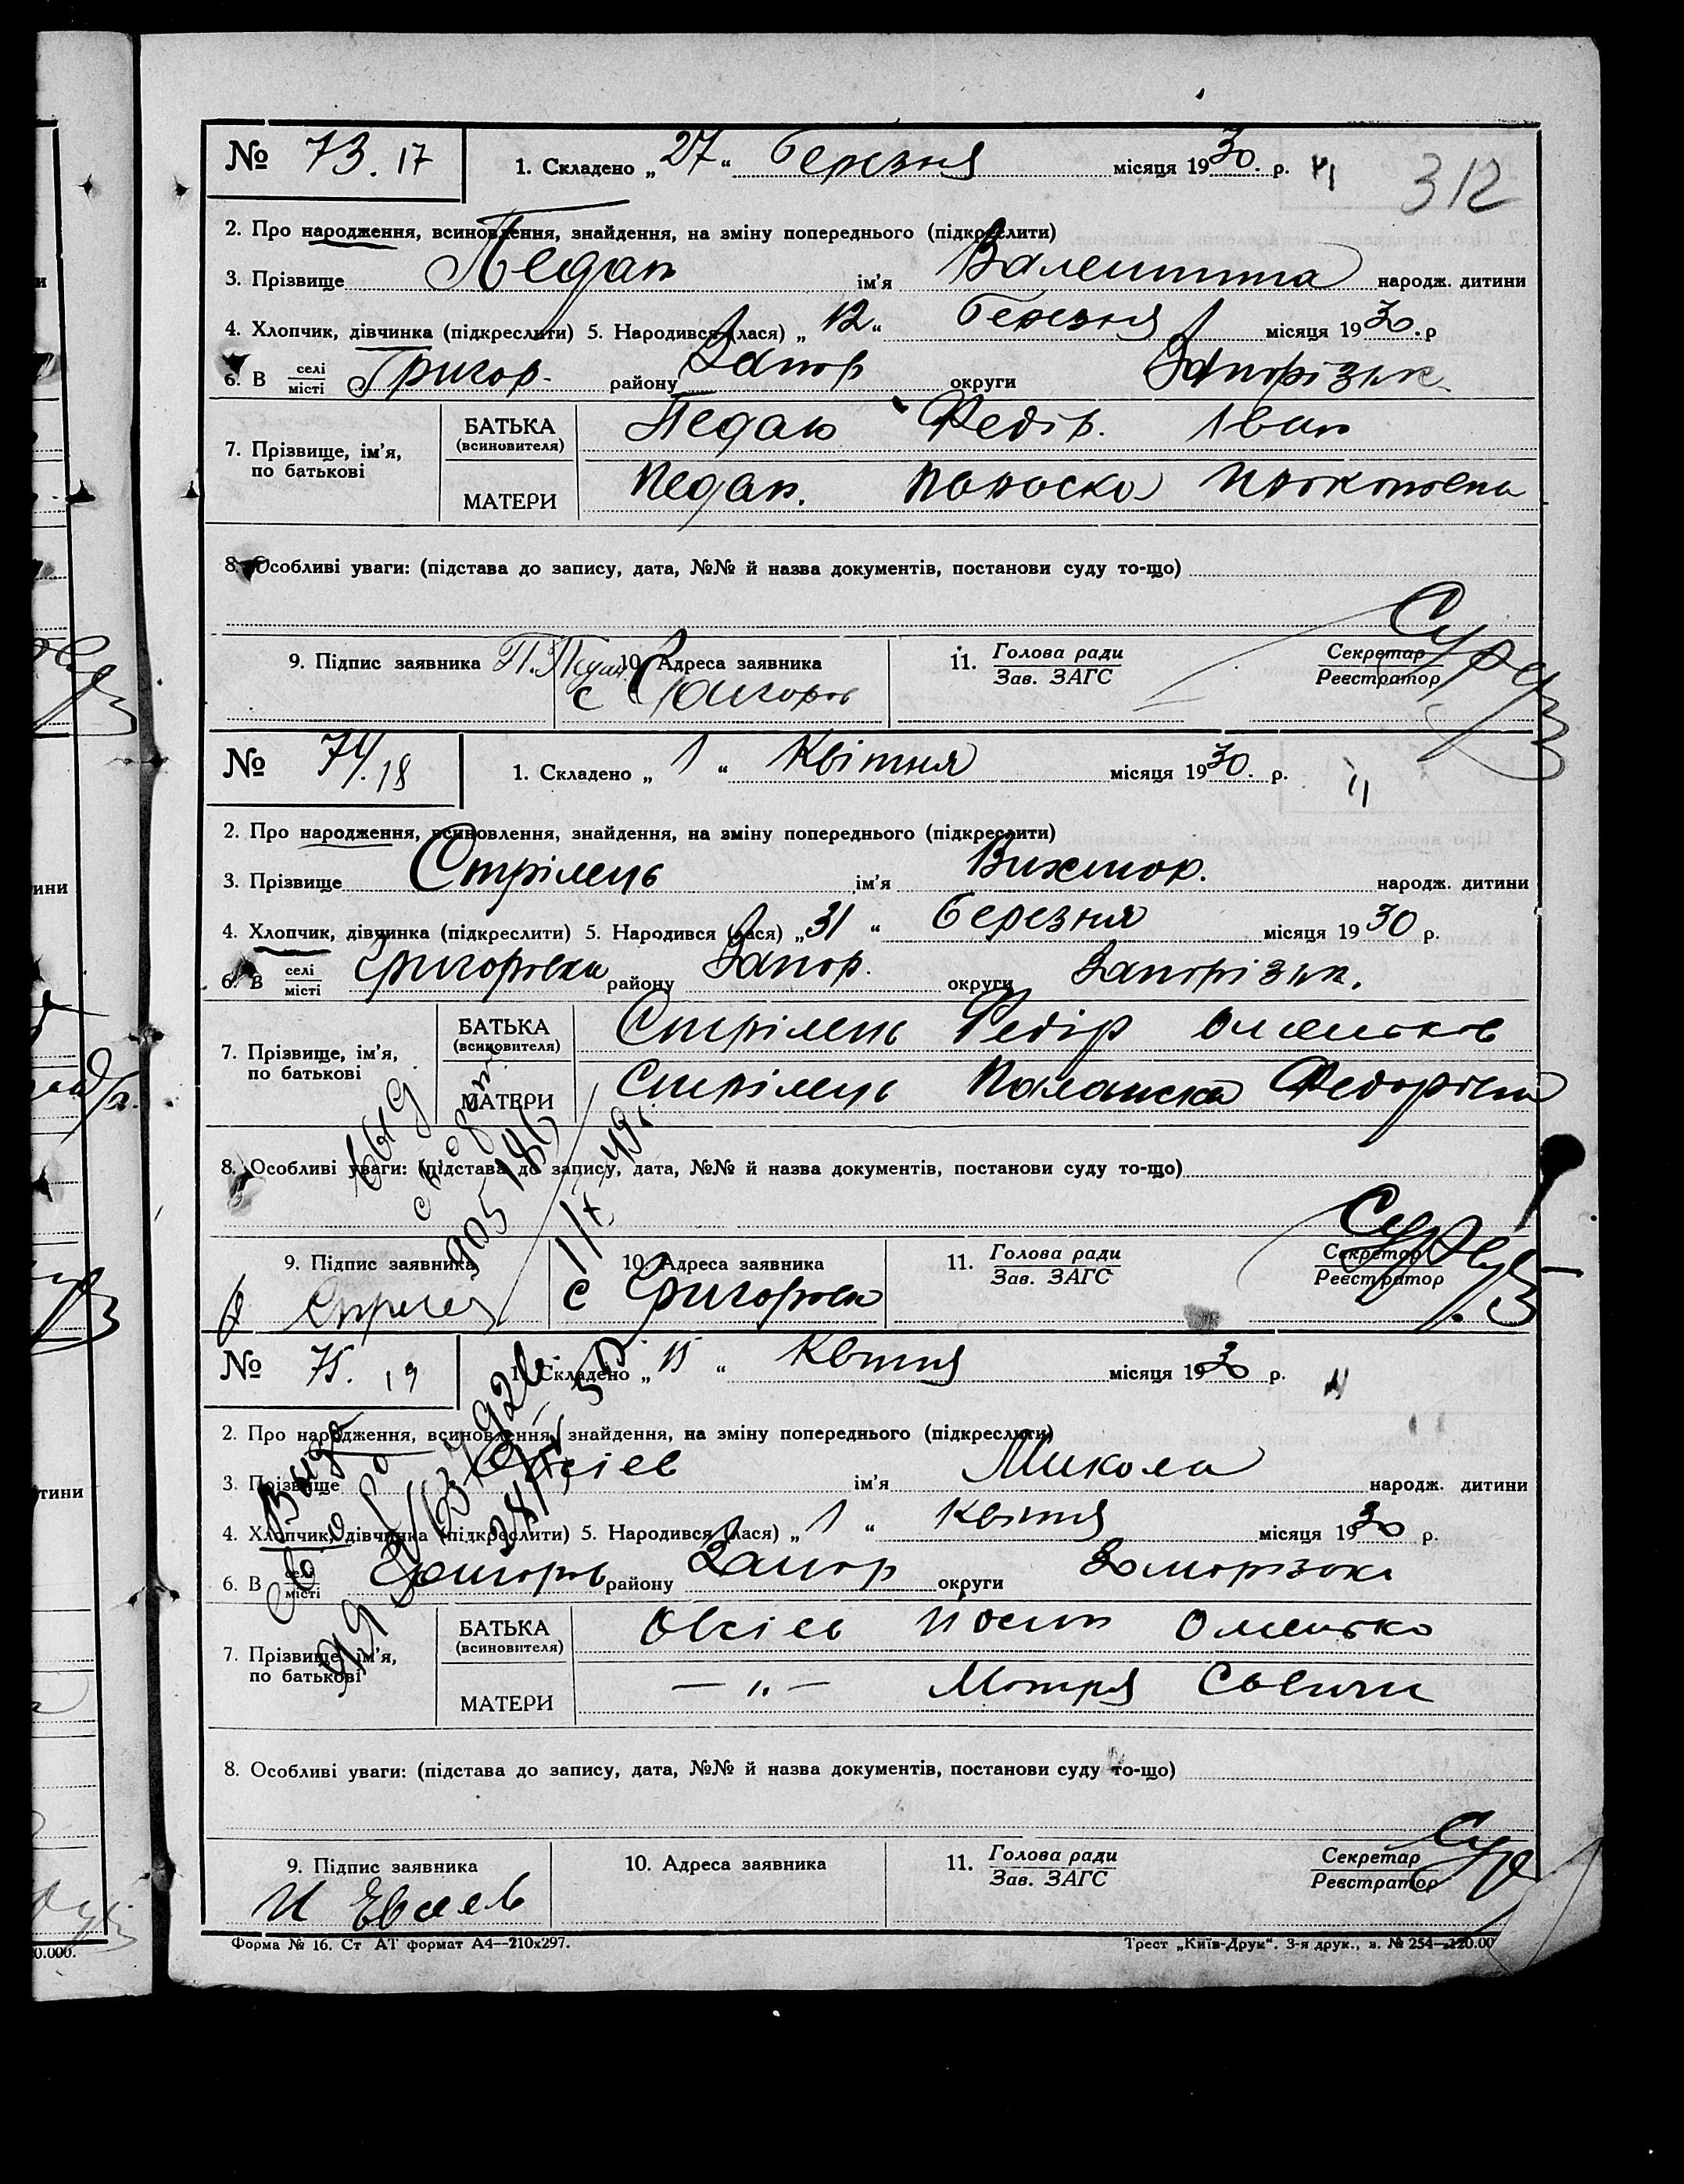 312
№ 73. 17 1. Складено „27“ березня місяця 1930. р.
2. Про народження, всиновлення, знайдення, на зміну попереднього (підкреслити)
3. Прізвище Педан ім'я Валентина народж. дитини
4. Хлопчик, дівчинка (підкреслити) 5. Народився (лася) „12“ березня місяця 1930.р
6. В селі місті Григор. району Запор округи Запорізьк.
7. Прізвище, ім'я, по батькові
БАТЬКА (всиновителя) Педан Федір. Іван
МАТЕРИ Педан. Параска Прокоповна
8. Особливі уваги: (підстава до запису, дата, №№ й назва документів, постанови суду то-що)
9. Підпис заявника П. Педан 10. Адреса заявника 11. Голова ради Секретар
Зав. ЗАГС Реєстратор
с Григоров
№ 74. 18 1. Складено „1“ Квітня місяця 1930. р.
2. Про народження, всиновлення, знайдення, на зміну попереднього (підкреслити)
3. Прізвище Стрілець ім'я Вихтор. народж. дитини
4. Хлопчик, дівчинка (підкреслити) 5. Народився (лася) „31“ березня місяця 1930 р.
6. В селі місті Григоровка району Запор. округи Запорізьк.
7. Прізвище, ім'я, по батькові
БАТЬКА (всиновителя) Стрілець Федір Омельков
МАТЕРИ Стрілець Паланска Федоровна
8. Особливі уваги: (підстава до запису, дата, №№ й назва документів, постанови суду то-що)
9. Підпис заявника 10. Адреса заявника 11. Голова ради Секретар
Зав. ЗАГС Реєстратор
с Григоровк
№ 75. 19 1. Складено „15“ Квітня місяця 1930 р.
2. Про народження, всиновлення, знайдення, на зміну попереднього (підкреслити)
3. Прізвище Овсієв ім'я Микола народж. дитини
4. Хлопчик, дівчинка (підкреслити) 5. Народився (лася) „1“ Квітня місяця 1930 р.
6. В селі місті Григоров району Запор округи Запорізька
7. Прізвище, ім'я, по батькові
БАТЬКА (всиновителя) Овсієв Йосип Омелько
МАТЕРИ — „ — Мотря
8. Особливі уваги: (підстава до запису, дата, №№ й назва документів, постанови суду то-що)
9. Підпис заявника 10. Адреса заявника 11. Голова ради Секретар
Зав. ЗАГС Реєстратор
И Евсеев
Форма № 16. Ст АТ формат А4—210x297. Трест „Київ-Друк“. 3-я друк., з. № 254—120.00